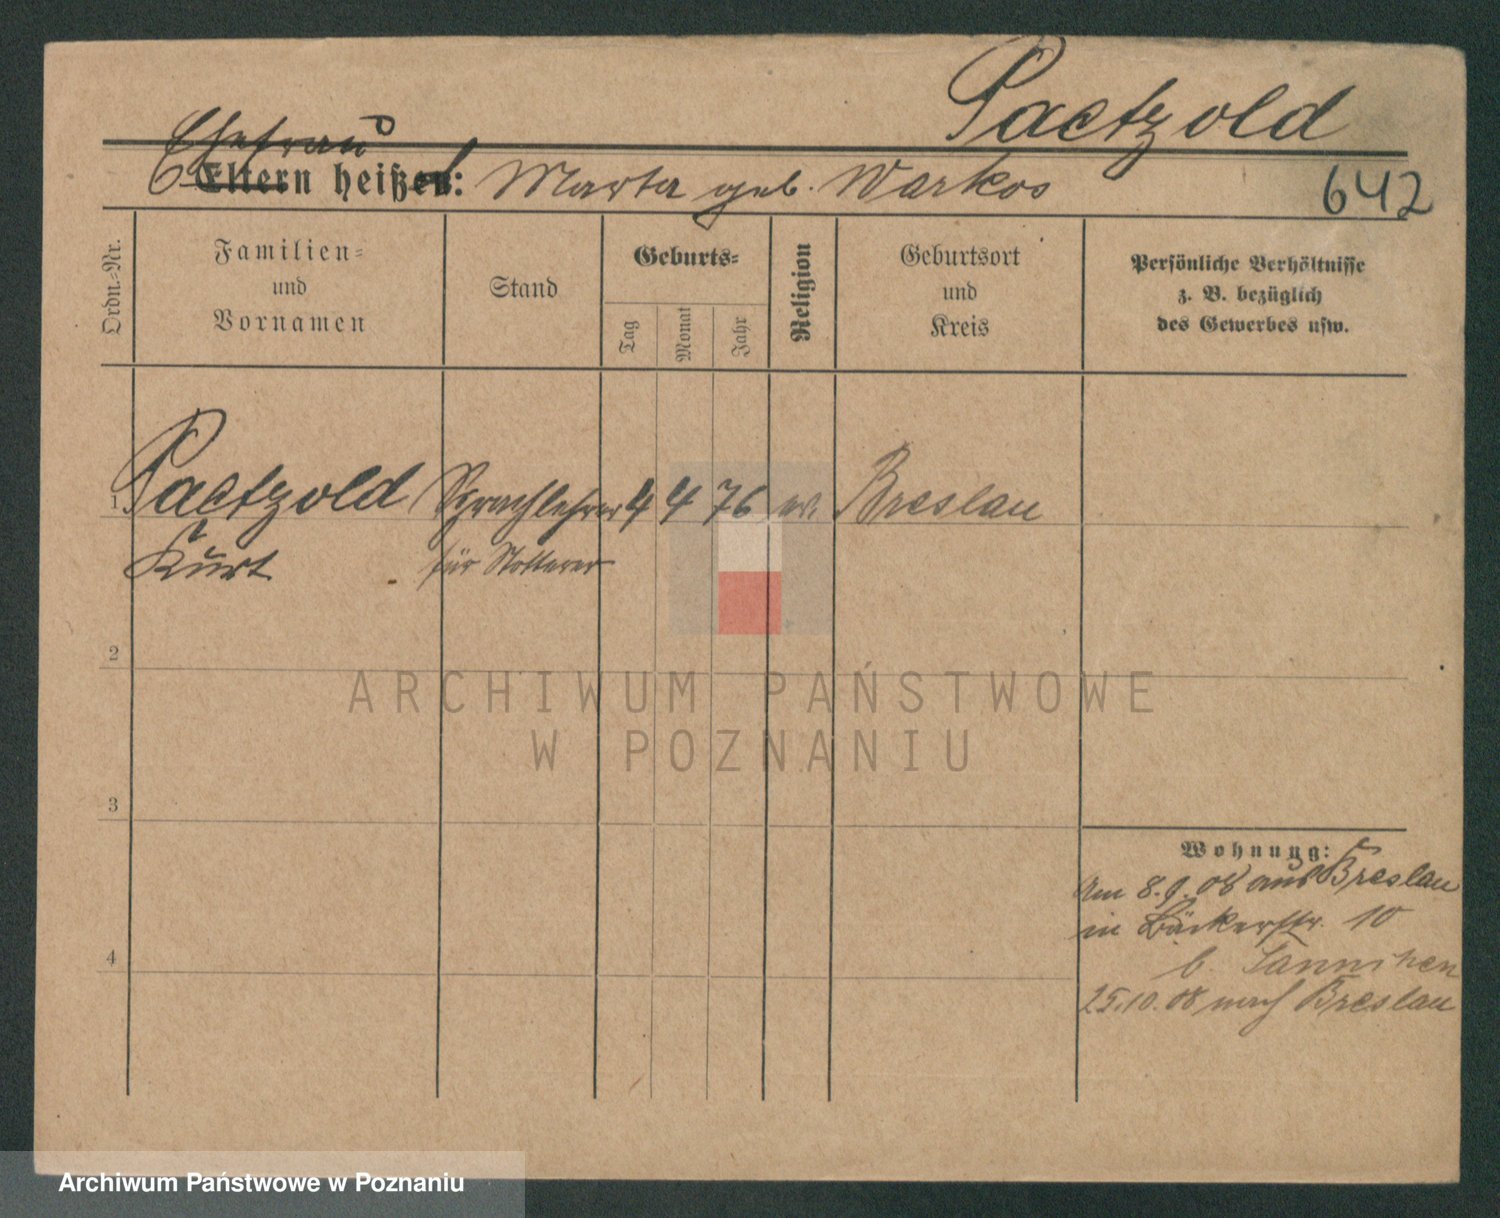 Paetzold
Ehefrau
Eltern heißen: Marta geb. Warkos
642
Ordn.-Nr.
Familien-
und
Vornamen
Stand
Geburts-
Tag
Monat
Jahr
Religion
Geburtsort
und
Kreis
Persönliche Verhältnisse
z. B. bezüglich
des Gewerbes usw.
1 Paetzold Sprachlehrer 4 4 76 ev. Breslau
Kurt für Stotterer
2
ARCHIWUM PAŃSTWOWE
W POZNANIU
3
Wohnung:
Am 8.9.08 aus Breslau
in Bäckerstr. 10
b.
4
25.10.08 nach Breslau
Archiwum Państwowe w Poznaniu